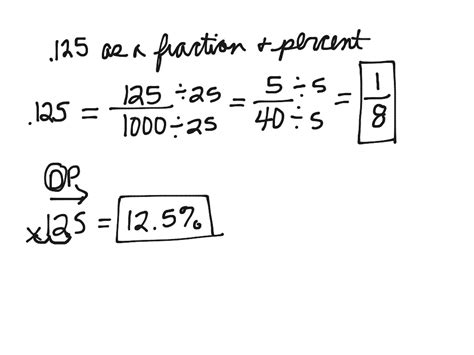 .125 as a fraction & percent
.125 = 125 ÷25 / 1000 ÷25 = 5 ÷5 / 40 ÷5 = 1/8
DP
.125 = 12.5%